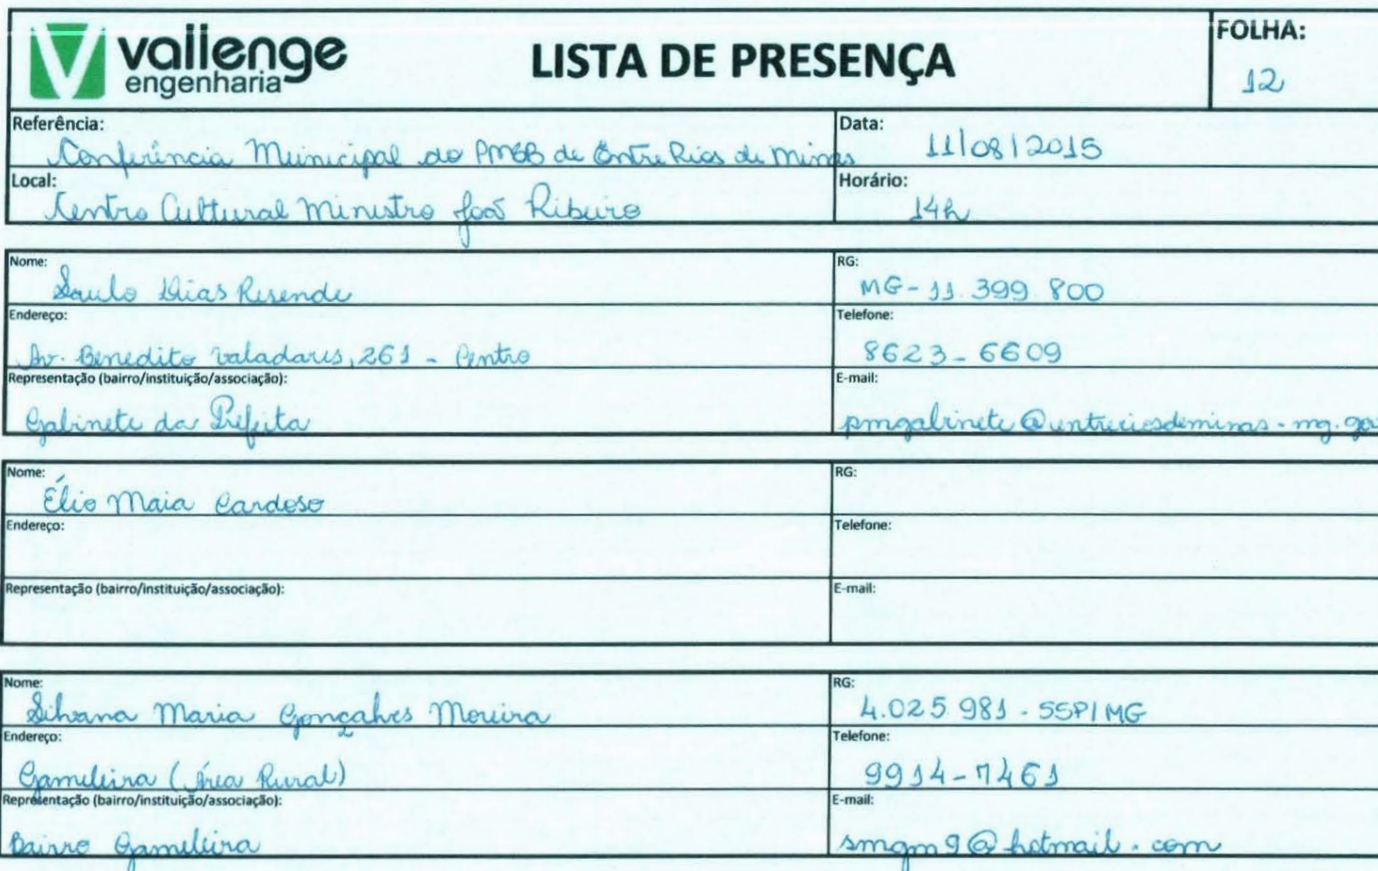 vallenge
engenharia
LISTA DE PRESENÇA
FOLHA:
12
Referência:
Conferência Municipal do PMSB de Entre Rios de Minas
Data:
11/08/2015
Local:
Centro Cultural Ministro João Ribeiro
Horário:
14h
Nome:
Saulo Dias Resende
RG:
MG-11.399.800
Endereço:
Av. Benedito Valadares, 261 - Centro
Telefone:
8623-6609
Representação (bairro/instituição/associação):
Gabinete da Prefeita
E-mail:
pmgabinete@entreriosdeminas.mg.gov
Nome:
Élio Maia Cardoso
RG:
Endereço:
Telefone:
Representação (bairro/instituição/associação):
E-mail:
Nome:
Silvana Maria Gonçalves Moreira
RG:
4.025.981-SSP/MG
Endereço:
Gameleira (Área Rural)
Telefone:
9914-7461
Representação (bairro/instituição/associação):
Bairro Gameleira
E-mail:
smgm9@hotmail.com